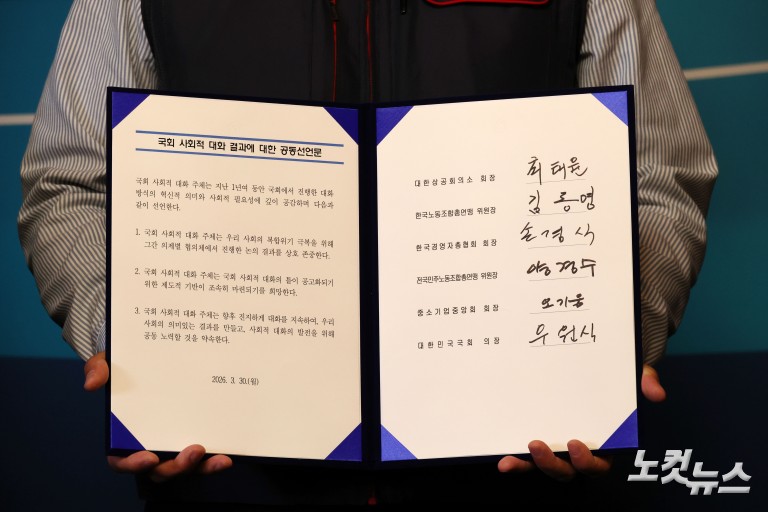 국회 사회적 대화 결과에 대한 공동선언문
국회 사회적 대화 주체는 지난 1년여 동안 국회에서 진행한 대화
방식의 혁신적 의미와 사회적 필요성에 깊이 공감하며 다음과
같이 선언한다.
1. 국회 사회적 대화 주체는 우리 사회의 복합위기 극복을 위해
그간 의제별 협의체에서 진행한 논의 결과를 상호 존중한다.
2. 국회 사회적 대화 주체는 국회 사회적 대화의 틀이 공고화되기
위한 제도적 기반이 조속히 마련되기를 희망한다.
3. 국회 사회적 대화 주체는 향후 진지하게 대화를 지속하여, 우리
사회의 의미있는 결과를 만들고, 사회적 대화의 발전을 위해
공동 노력할 것을 약속한다.
2026. 3. 30.(월)
대한상공회의소 회장 최태원
한국노동조합총연맹 위원장 김동명
한국경영자총협회 회장 손경식
전국민주노동조합총연맹 위원장 양경수
중소기업중앙회 회장 오기웅
대한민국국회 의장 우원식
노컷뉴스